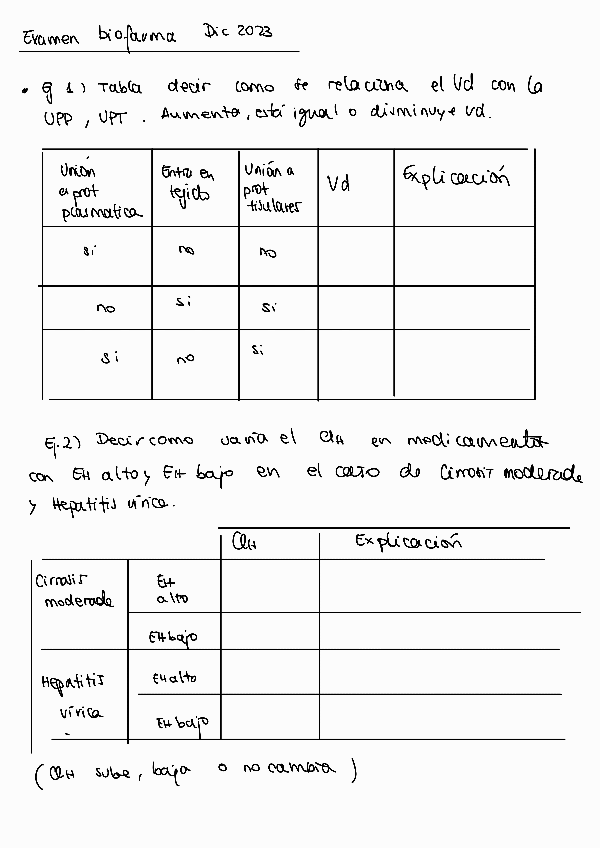 Examen biofarma Dic 2023
• Ej 1) Tabla decir como se relaciona el Vd con la
UPP, UPT. Aumenta, está igual o disminuye Vd.
Unión a prot plasmatica | Entra en tejido | Unión a prot tisulares | Vd | Explicación
si | no | no
no | si | si
si | no | si
Ej.2) Decir como varía el ClH en medicamentos
con EH alto y EH bajo en el caso de Cirrosis moderada
y Hepatitis vírica.
ClH | Explicación
Cirrosis moderada | EH alto
EH bajo
Hepatitis vírica | EH alto
EH bajo
(ClH sube, baja o no cambia)